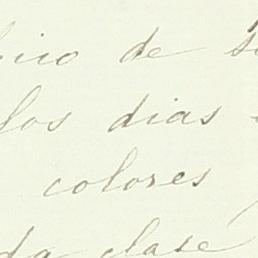 de
los dias
colores
clase